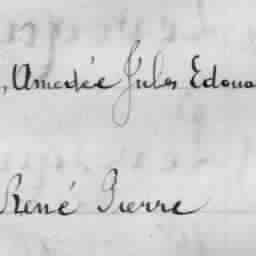 , Amedée Jules Edoua
René Pierre